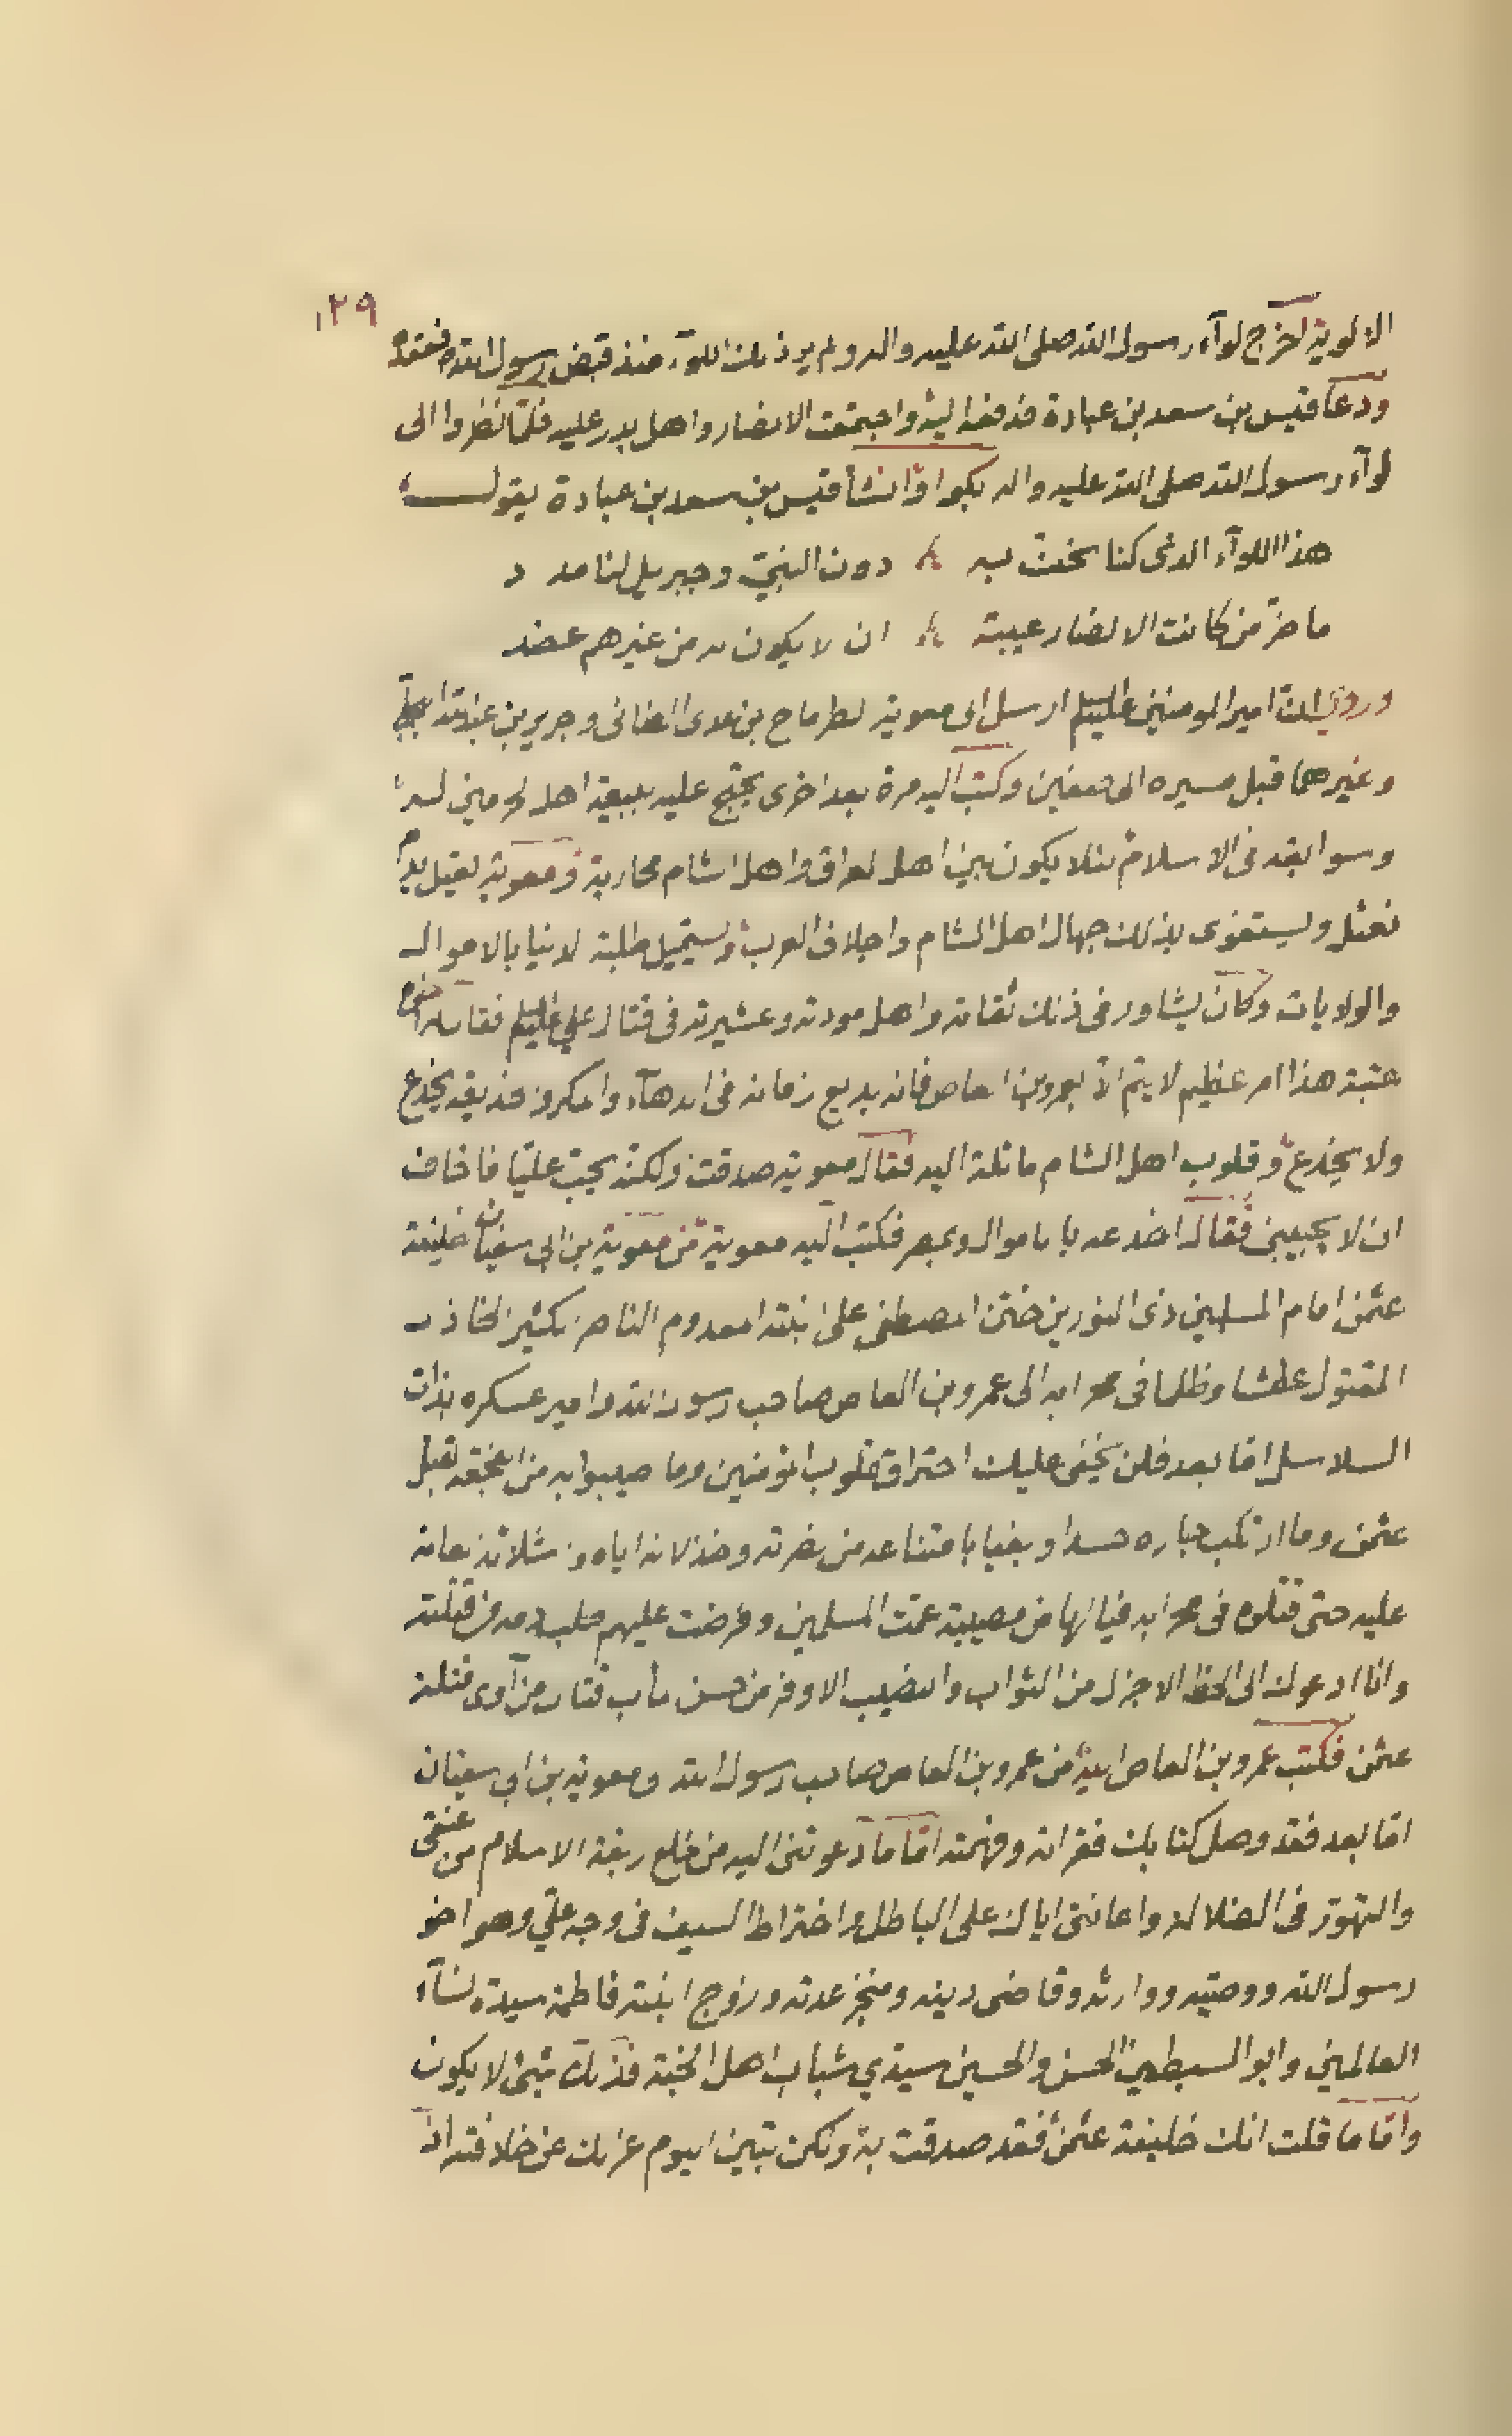 ١٢٩
الالوية لخرج لوآء رسول الله صلى الله عليه واله ولم ير ذلك اللوآء منذ قبض رسول الله فعقده
ودعا قيس بن سعد بن عبادة فدفعه اليه واجتمعت الانصار واهل بدر عليه فلما نظروا الى
لوآء رسول الله صلى الله عليه واله بكوا وانشأ قيس بن سعد بن عبادة يقول
هذا اللوآء الذى كنا نحف به دون النبي وجبريل لنا مدد
ما ضر من كانت الانصار عيبته ان لا يكون له من غيرهم عضد
وروى ان امير المومنين عليه السلم ارسل الى معوية لطرماح بن عدى الطائى وجرير بن عبد الله البجلى
وغيرهما قبل مسيره الى صفين وكتب اليه مرة بعد اخرى يحتج عليه ببيعة اهل لحرمين له
وسوابقه فى الاسلام لئلا يكون بين اهل لعراق واهل الشام محاربة ومعوية يعتل بدم
نعثل ويستغوى بذلك جهال اهل الشام واجلاف العرب ويستميل طلبة لدنيا بالاموال
والولايات وكان يشاور فى ذلك ثقاته واهل مودته وعشيرته فى قتال علي عليه السلم فقال له اخوه
عتبة هذا امر عظيم لا يتم الا بعمرو بن العاص فانه بديع زمانه فى الدهآء والمكر وخديعة يخدع
ولا يخدع وقلوب اهل الشام مائلة اليه فقال معوية صدقت ولكنه يحب عليا فاخاف
ان لا يجيبنى فقال اخدعه بالاموال وبمصر فكتب اليه معوية من معوية بن ابى سفيان خليفة
عثمن امام المسلمين ذى النورين ختن المصطفى على ابنته المعدوم الناصر الكثير الخاذل
المقتول عطشا وظلما فى محرابه الى عمرو بن العاص صاحب رسول الله وامير عسكره بذات
السلاسل اما بعد فلن يخفى عليك احتراق قلوب المؤمنين وما اصيبوا به من الفجعة بقتل
عثمن وما ارتكب جاره حسدا وبغيا بامتناعه من نصرته وخذلانه اياه
عليه حتى قتلوه فى محرابه فيا لها من مصيبة عمت المسلمين وفرضت عليهم طلب دمه من قتلته
وانا ادعوك الى الحظ الاجزل من الثواب والنصيب الاوفر من حسن مأب قتال من آوى قتلة
عثمن فكتب عمرو بن العاص اليه من عمرو بن العاص صاحب رسول الله ومعوية بن ابى سفيان
اما بعد فقد وصل كتابك فقراته وفهمته اما ما دعوتنى اليه من خلع ربقة الاسلام من عنقى
والتهور فى الضلاله واعانتى اياك على الباطل واختراط السيف فى وجه علي وهو اخو
رسول الله ووصيه ووارثه وقاضى دينه ومنجز عدته وزوج ابنته فاطمة سيدة نسآء
العالمين وابو السبطين الحسن والحسين سيدي شباب اهل الجنة فذلك شئ لا يكون
واما ما قلت انك خليفة عثمن فقد صدقت به ولكن تبين اليوم عزلك عن خلافته اذا